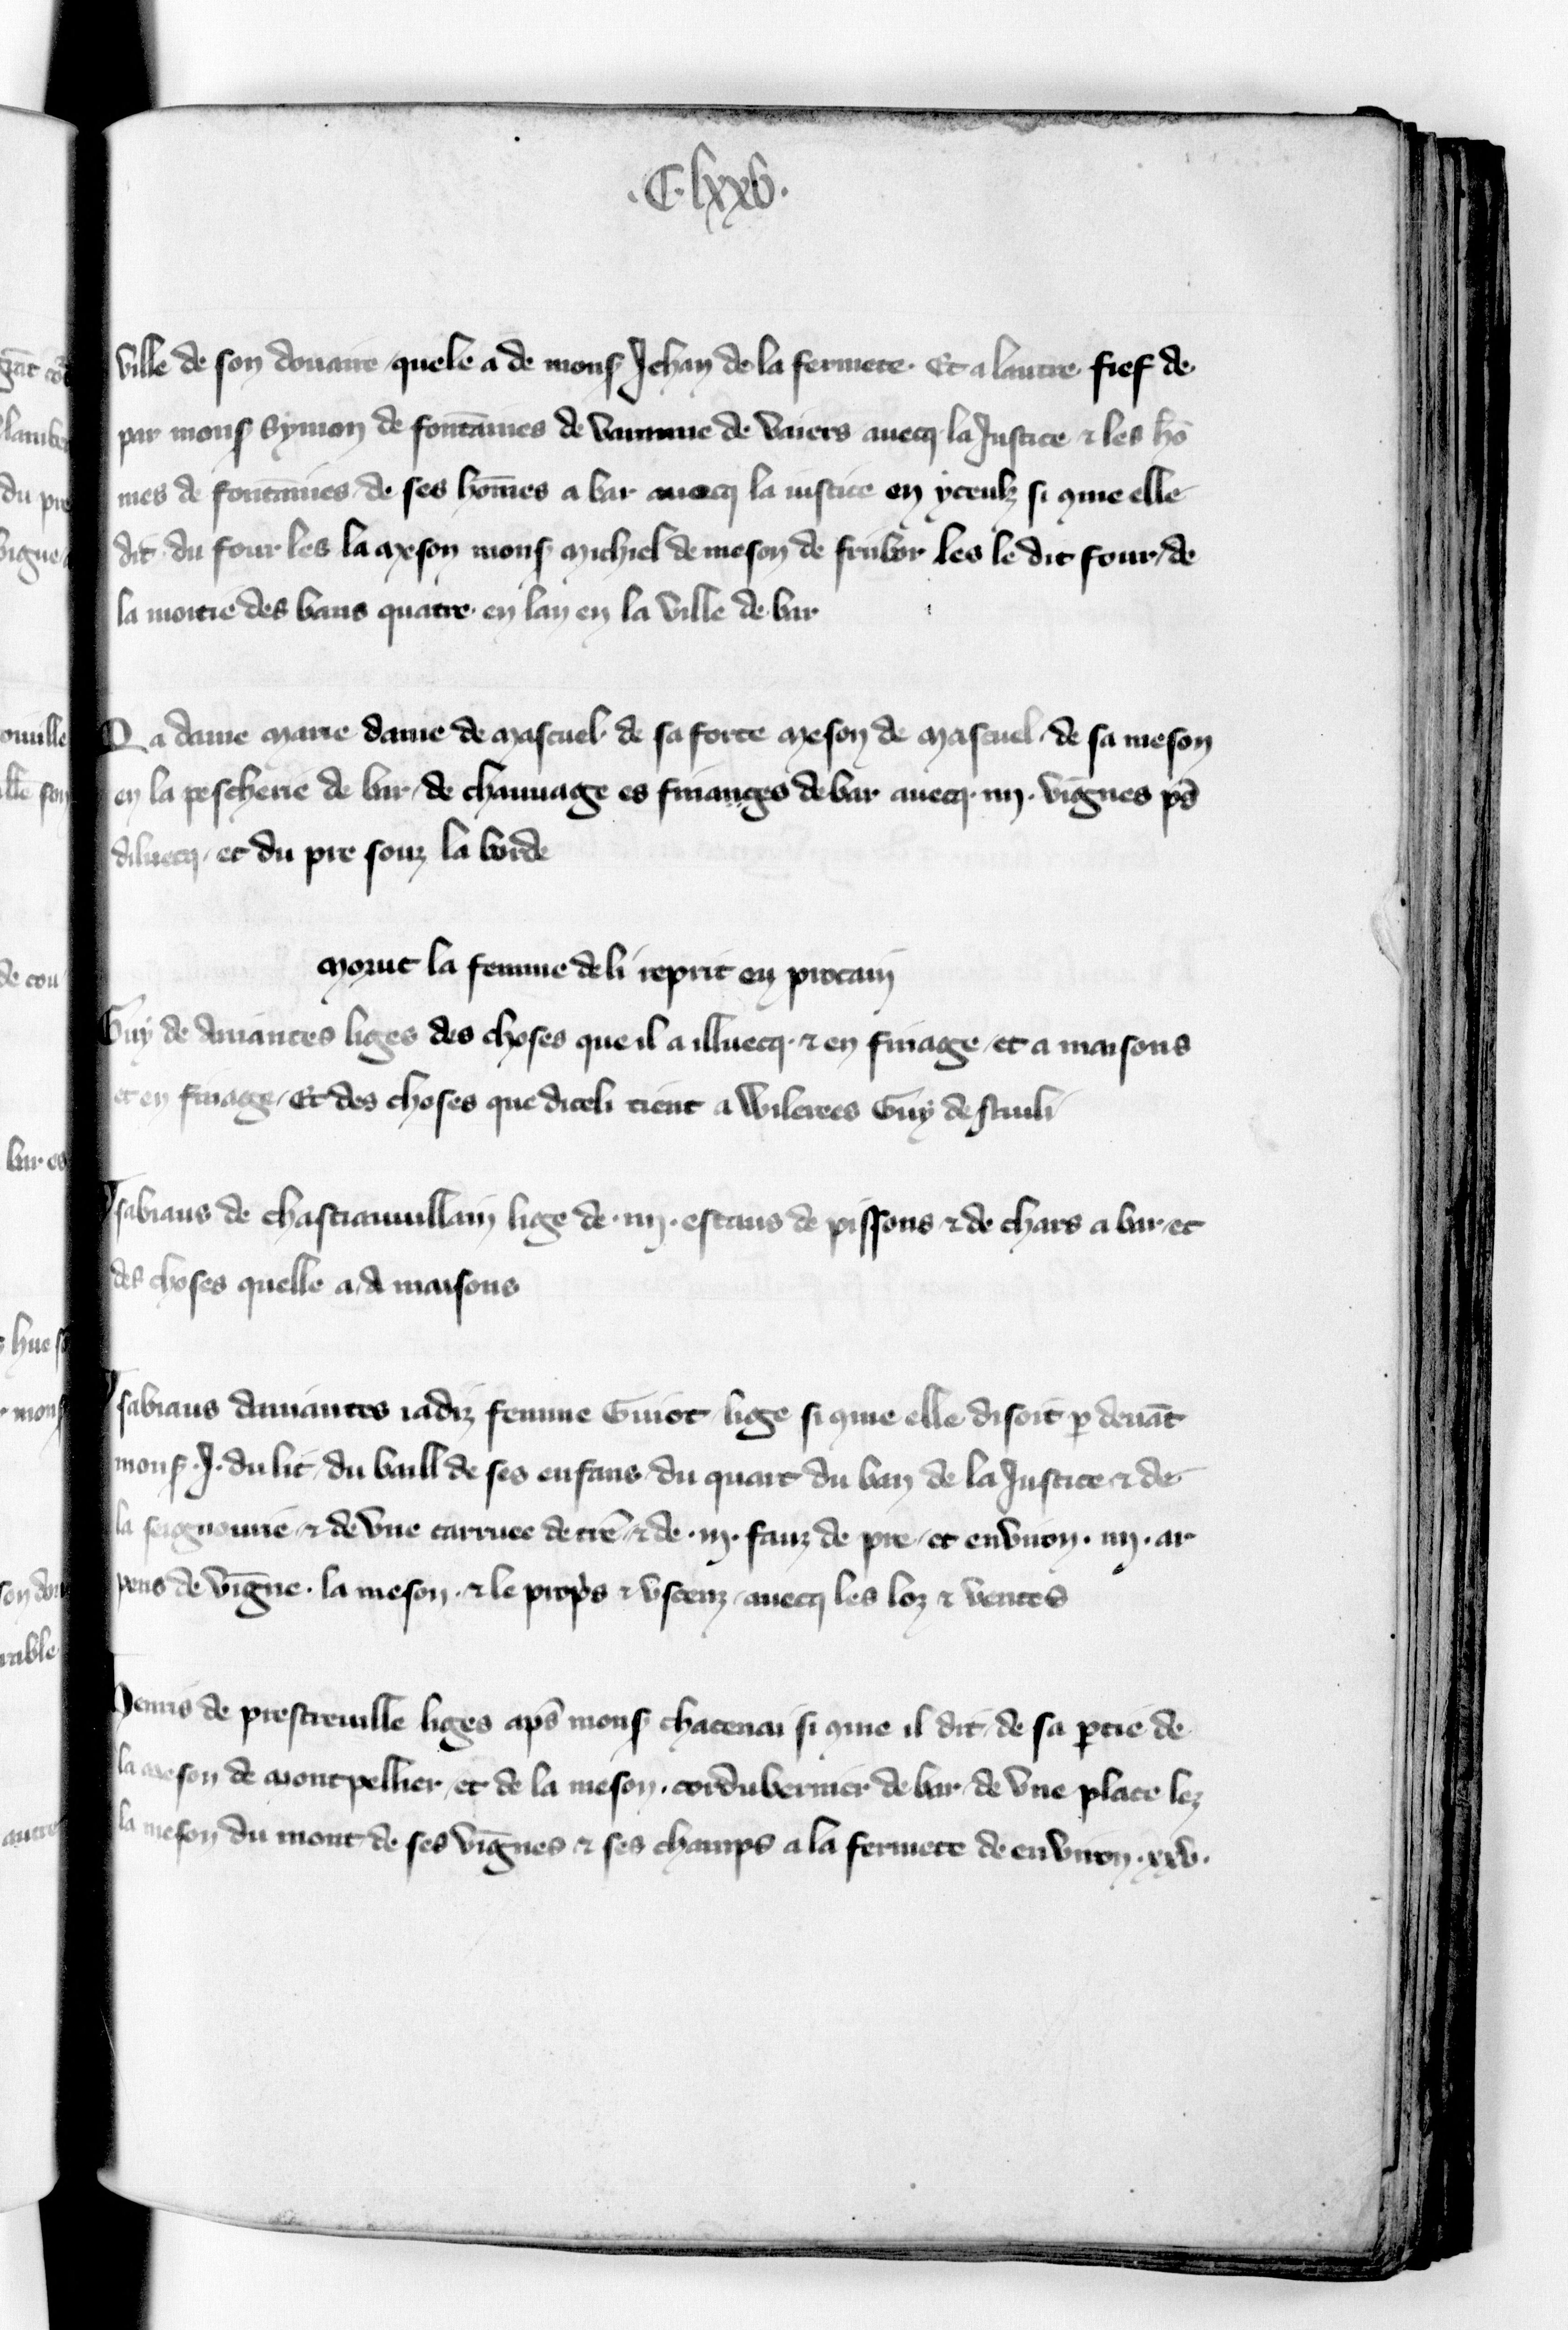 .C.lxxv.
ville de son douaire quele a de mons Jehan de la fermete. Et a lautre fief de
par mons Symon de fontānies de Vannnue de Vaiers auecq la Justice & les hō
mes de fontānies de ses hōmes a bar auecq la iustice en yceulz si 9me elle
dit du four les la meson mons Michiel de meson de fribor les le dit four de
la moitie des bans quatre en lan en la ville de bar
La dame Marie dame de Mascuel de sa forte Meson de Mascuel de sa meson
en la pescherie de bar de chauuage es finanges de bar auecq .iiij. vignes pš
diluecq et du pre souz la borde
Morut la femme de li reprit en procain
Guy de amantes liges des choses que il a illuecq & en finage et a maisons
et en finage Et des choses que diceli tient a Wileres Guy de
Ysabiaus de chastiauuillain lige de .iiij. estaus de pissons & de chars a bar et
des choses quelle a a maisons
Ysabiaus damantes iadiz femme Guiot lige si 9me elle disoit p deuāt
mons .J. du lit du baill de ses enfans du quart du ban de la Justice & de
la seignourie & de vne carruee de tre & de .iij. fauz de pre et enuiron .iiij. ar
pens de vigne. la meson. & le propis & vscenz auecq les loz & ventes
Henris de prestreuille liges aps mons chatenai si 9me il dit de sa ptie de
la meson de Montpellier et de la meson . cordubernier de bar de vne place lez
la meson du mont de ses vignes & ses champs a la fermete de enuiron .xxv.